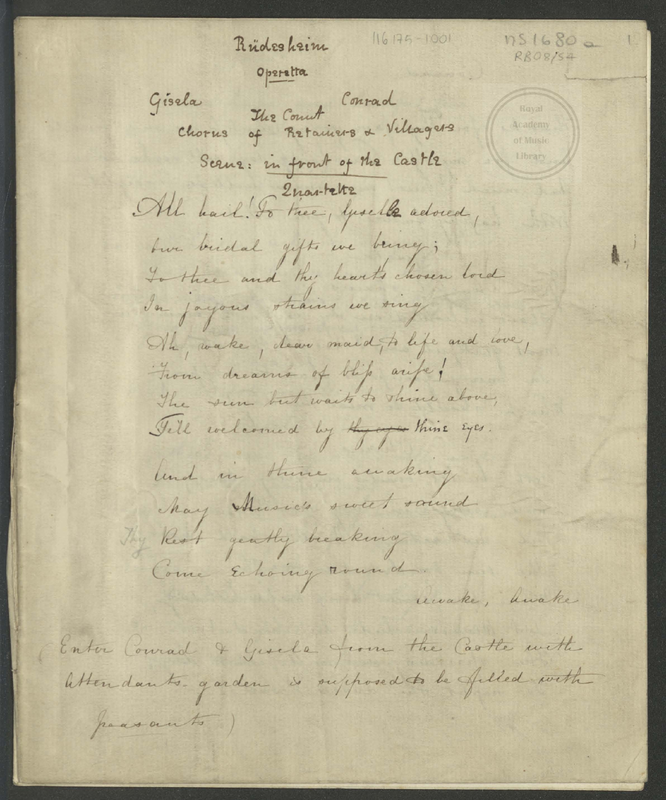 116.175-1001
MS1680a
1
RB08/54
Rüdesheim
Operetta
Gisela Conrad
The Count
Chorus of Retainers & Villagers
Scene: in front of the Castle
Quartette
Royal
Academy
of Music
Library
All hail! To thee, Giselle adored,
our bridal gifts we bring;
To thee and thy heart's chosen lord
In joyous strains we sing
Ah, wake, dear maid, to life and love,
From dreams of bliss arise!
The sun but waits to shine above,
Till welcomed by thine eyes.
And in thine awaking
May Music's sweet sound
Thy Rest gently breaking
Come Echoing round
awake, awake
(Enter Conrad & Gisela from the Castle with
Attendants. garden is supposed to be filled with
peasants)